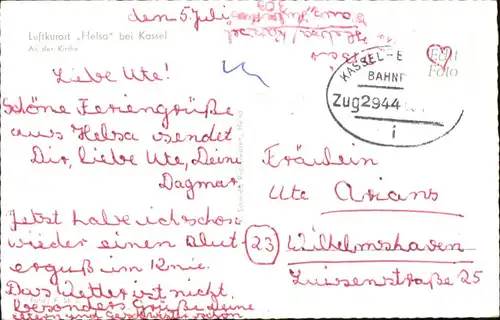 den 5. Juli
Luftkurort „Helsa" bei Kassel
An der Kirche
Liebe Ute!
Schöne Feriengrüße
aus Helsa sendet
Dir, liebe Ute, Deine
Dagmar
Jetzt habe ich schon
wieder einen Blut
erguß im Knie.
Das Wetter ist nicht
besonders Grüße deine
Eltern und Geschwister schön
Helsa/Kassel
KASSEL-E
BAHNP
Zug2944
i
Echt
Foto
Fräulein
Ute Arians
23 Wilhelmshaven
Luisenstraße 25